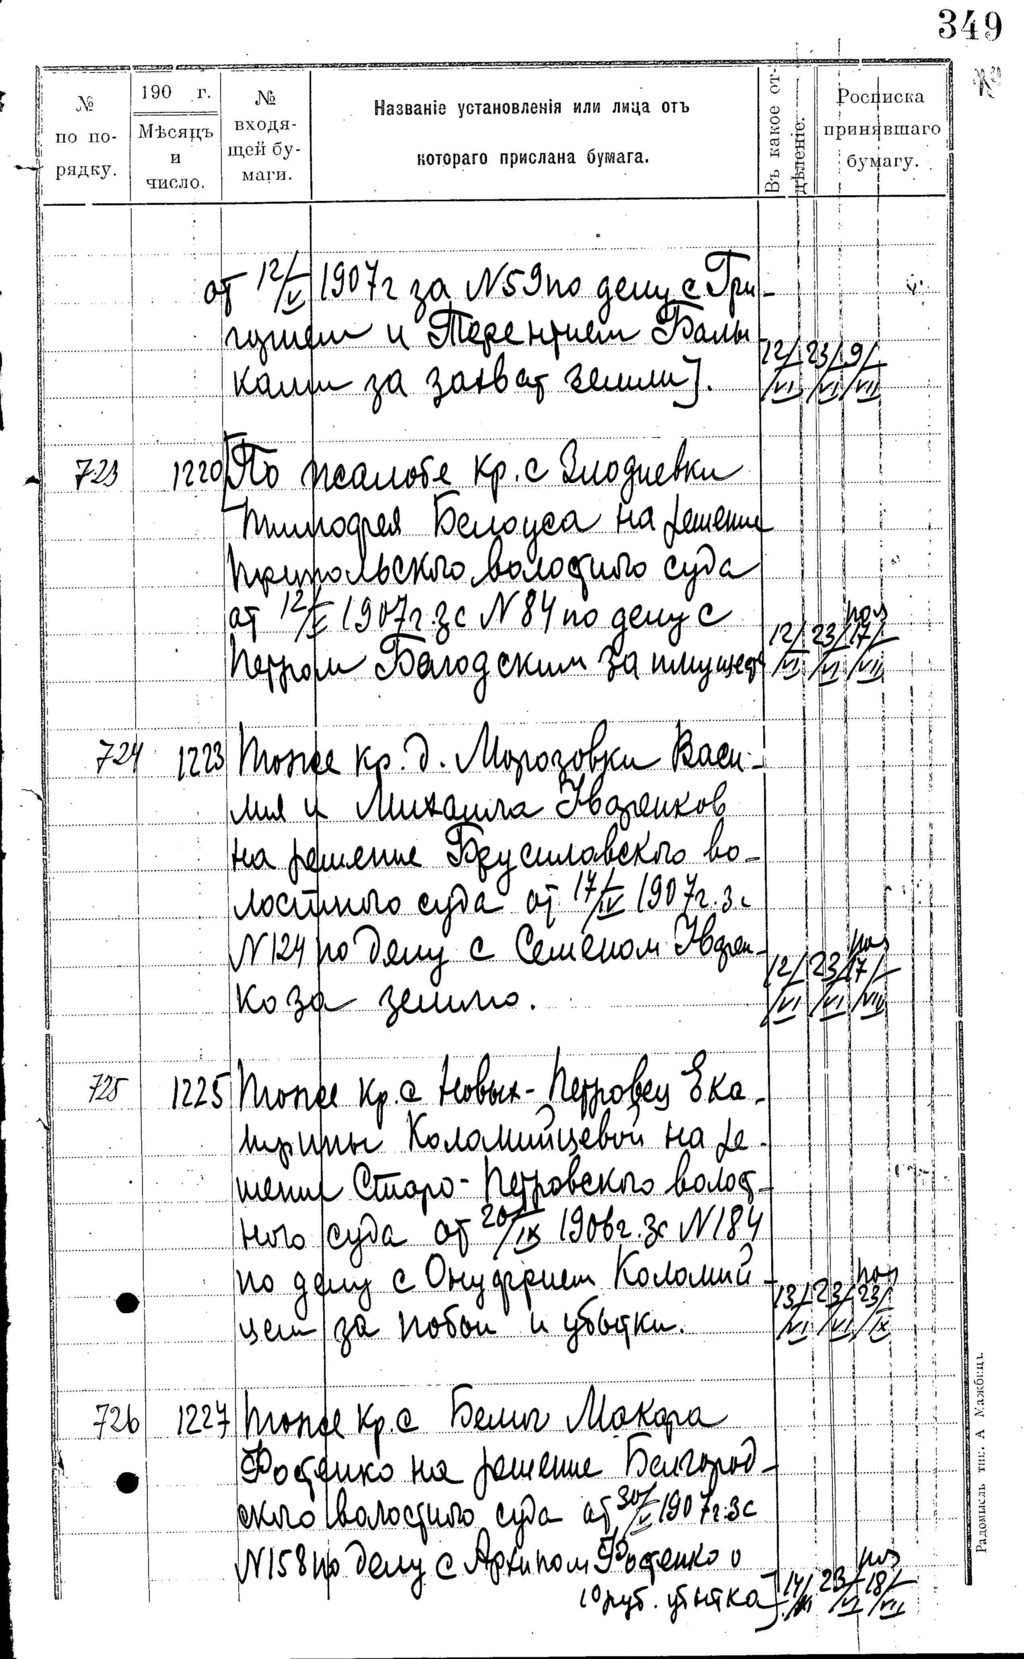 349
№ по порядку.
190 г.
Мѣсяцъ и число.
№ входящей бумаги.
Названіе установленія или лица отъ котораго прислана бумага.
Въ какое отдѣленіе.
Росписка принявшаго бумагу.
от 12/V 1907 г за N 59 по делу с Гри-
горием и Терентием
ками за захват земли].
12/VI 23/VI 9/VII
723 1220 [По жалобе кр. с Злодиевки
Тимофея Белоуса на решение
Трипольского волостного суда
от 12/V 1907 г. за N 84 по делу с
Петром за имущест
12/VI 23/VI 17/VII
724 1223 Тоже кр. д. Морозовки Васи-
лия и Михаила Ивденков
на решение Брусиловского во-
лостного суда от 17/IV 1907 г. за
N 124 по делу с Семеном Ивден-
ко за землю.
12/VI 23/VI 17/VIII
725 1225 Тоже кр. с Новых-Петровец Ека-
терины Коломийцевой на ре-
шение Старо-Петровского волост-
ного суда от 20/IX 1906 г. за N 184
по делу с Онуфрием Коломий-
цем за побои и убытки.
13/VI 23/VI 23/IX
726 1227 Тоже кр. с Макара
Фостенко на решение Белгород-
ского волостного суда от 30/V 1907 г. за
N 158 по делу с Архипом Фостенко о
10 руб. убытка]
14/VI 23/VI 18/VII
Радомысль тип. А Мажбицъ